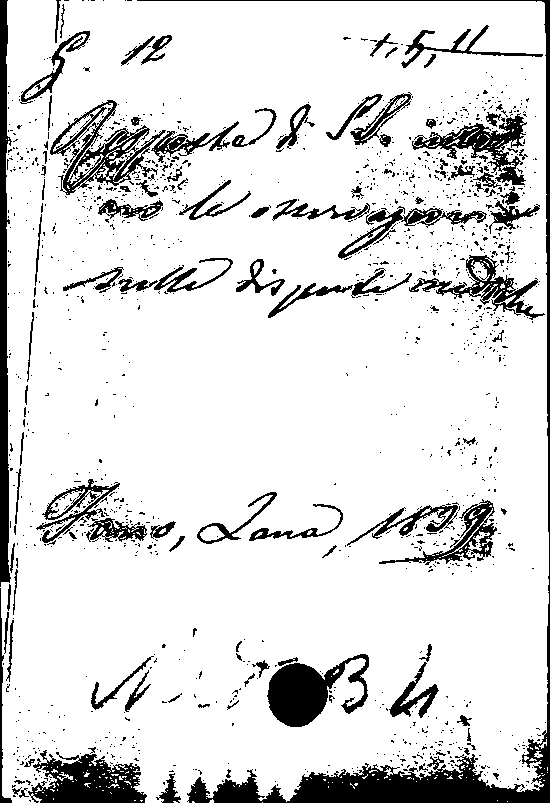 G. 12 1, 5, 11
Risposta di S.S. intor
no le osservazioni
sulle dispute mediche
Fano, Lana, 1839
B 4